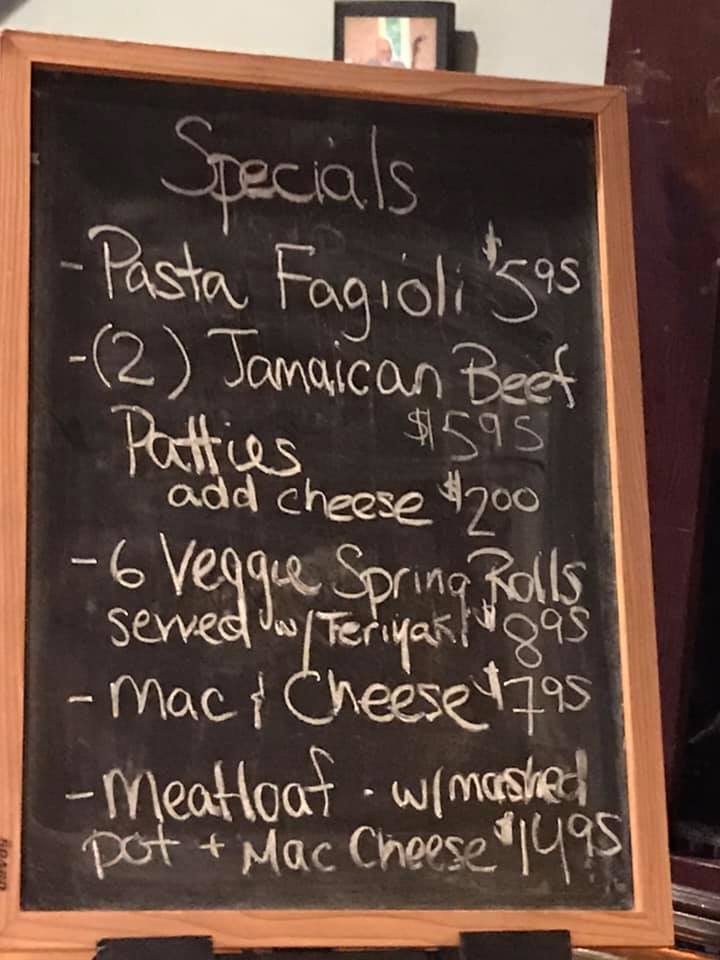 Specials
- Pasta Fagioli $5.95
- (2) Jamaican Beef
Patties $5.95
add cheese $2.00
- 6 Veggie Spring Rolls
served w/ Teriyaki $8.95
- Mac & Cheese $7.95
- Meatloaf - w/ mashed
pot + Mac Cheese $14.95